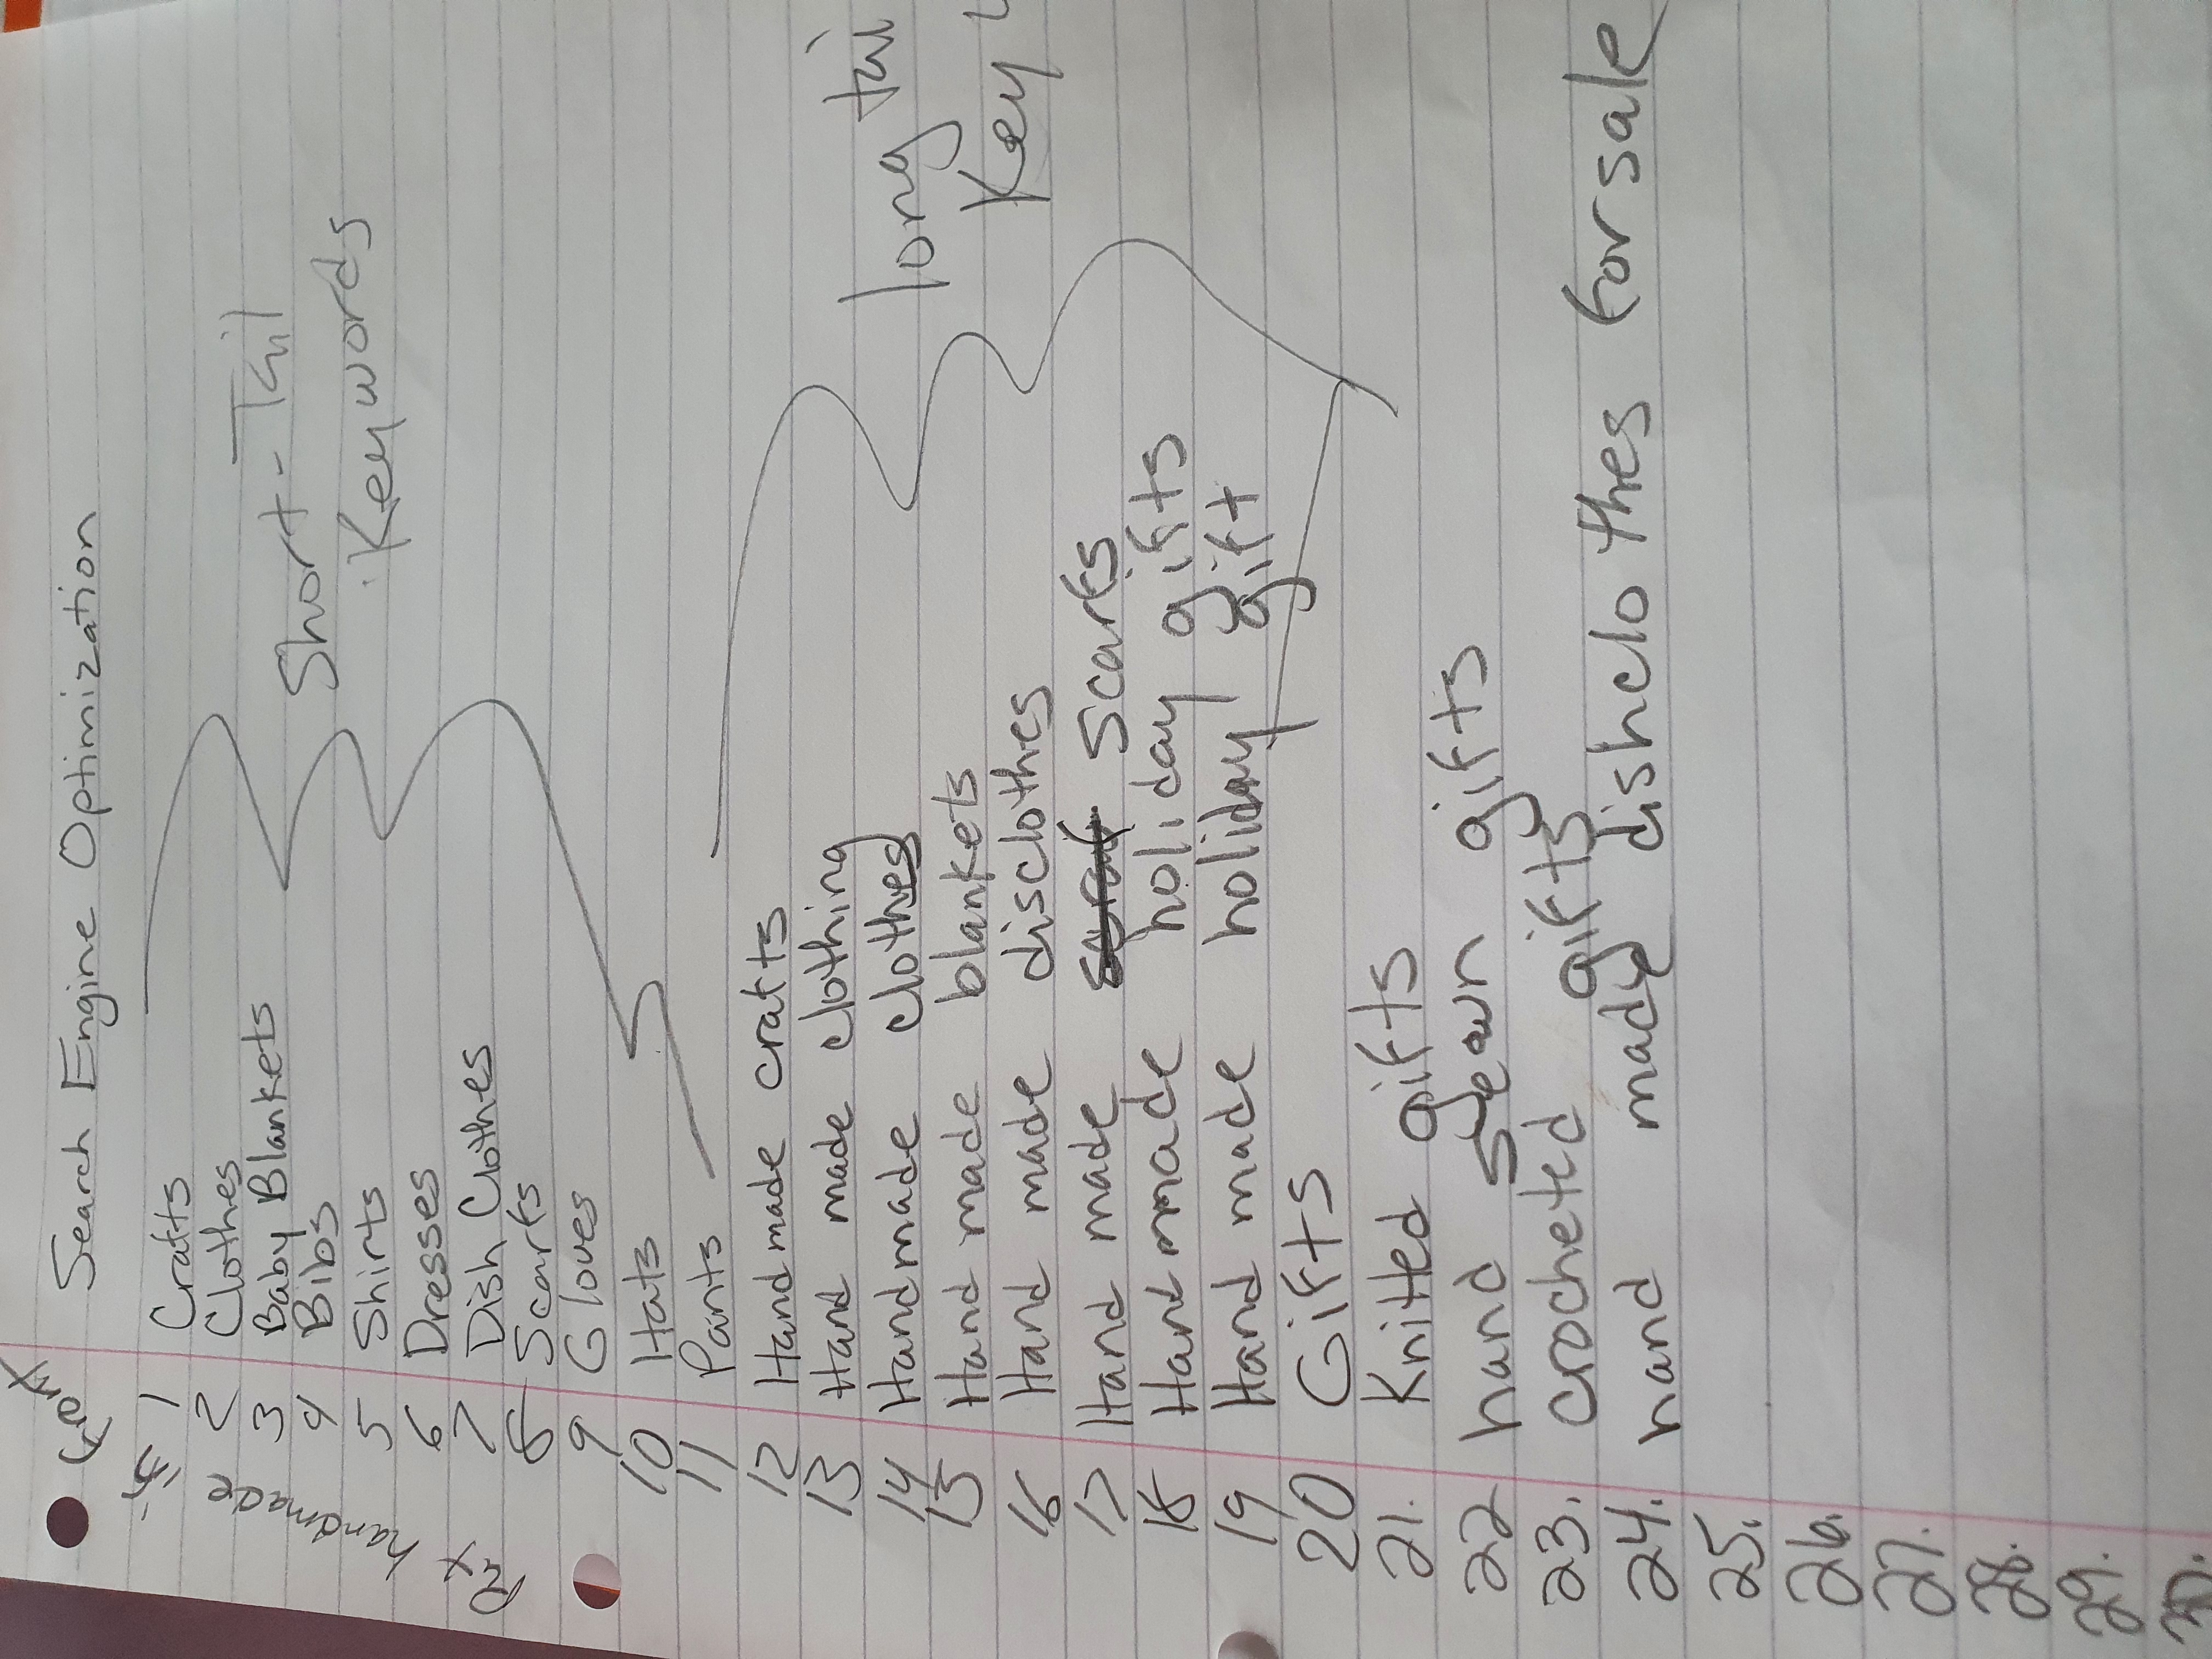 Put handmade in front
Search Engine Optimization
1 Crafts
2 Clothes
3 Baby Blankets
4 Bibs
5 Shirts
6 Dresses
7 Dish Clothes
8 Scarfs
9 Gloves
10 Hats
11 Pants
Short-Tail
Keywords
12 Handmade crafts
13 Hand made clothing
14 Handmade clothes
15 Hand made blankets
16 Hand made disclothes
17 Hand made scarfs
18 Handmade holiday gifts
19 Hand made holiday gift
long tai
Key
20 Gifts
21. Knitted gifts
22 hand sewn gifts
23. crocheted gifts
24. hand made dishclothes for sale
25.
26.
27.
28.
29.
30.